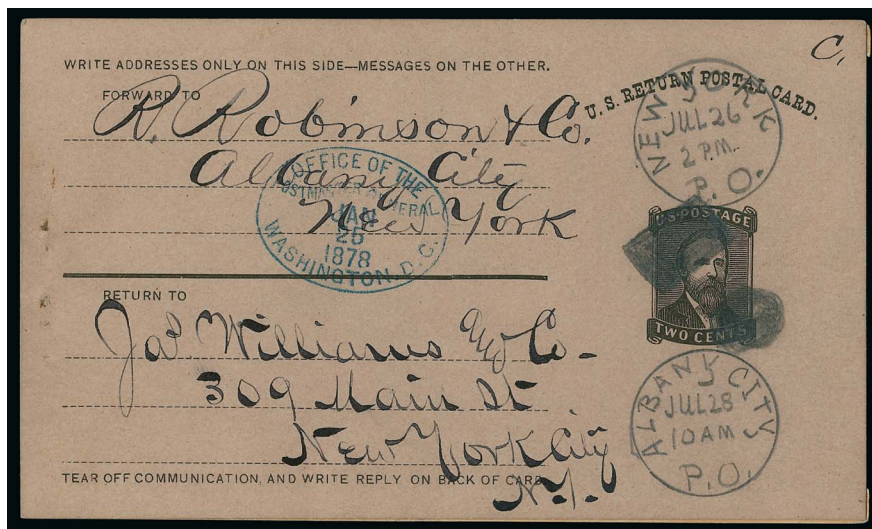 C.
WRITE ADDRESSES ONLY ON THIS SIDE—MESSAGES ON THE OTHER.
U.S. RETURN POSTAL CARD.
FORWARD TO
R. Robinson & Co.
Albany City
New York
NEW YORK
JUL 26
2 P.M.
P.O.
OFFICE OF THE
POSTMASTER GENERAL
JAN
25
1878
WASHINGTON. D.C.
U.S. POSTAGE
TWO CENTS
RETURN TO
Jas. Williams and Co-
309 Main St
New York City
N.Y.
ALBANY CITY
JUL 28
10 AM
P.O.
TEAR OFF COMMUNICATION, AND WRITE REPLY ON BACK OF CARD